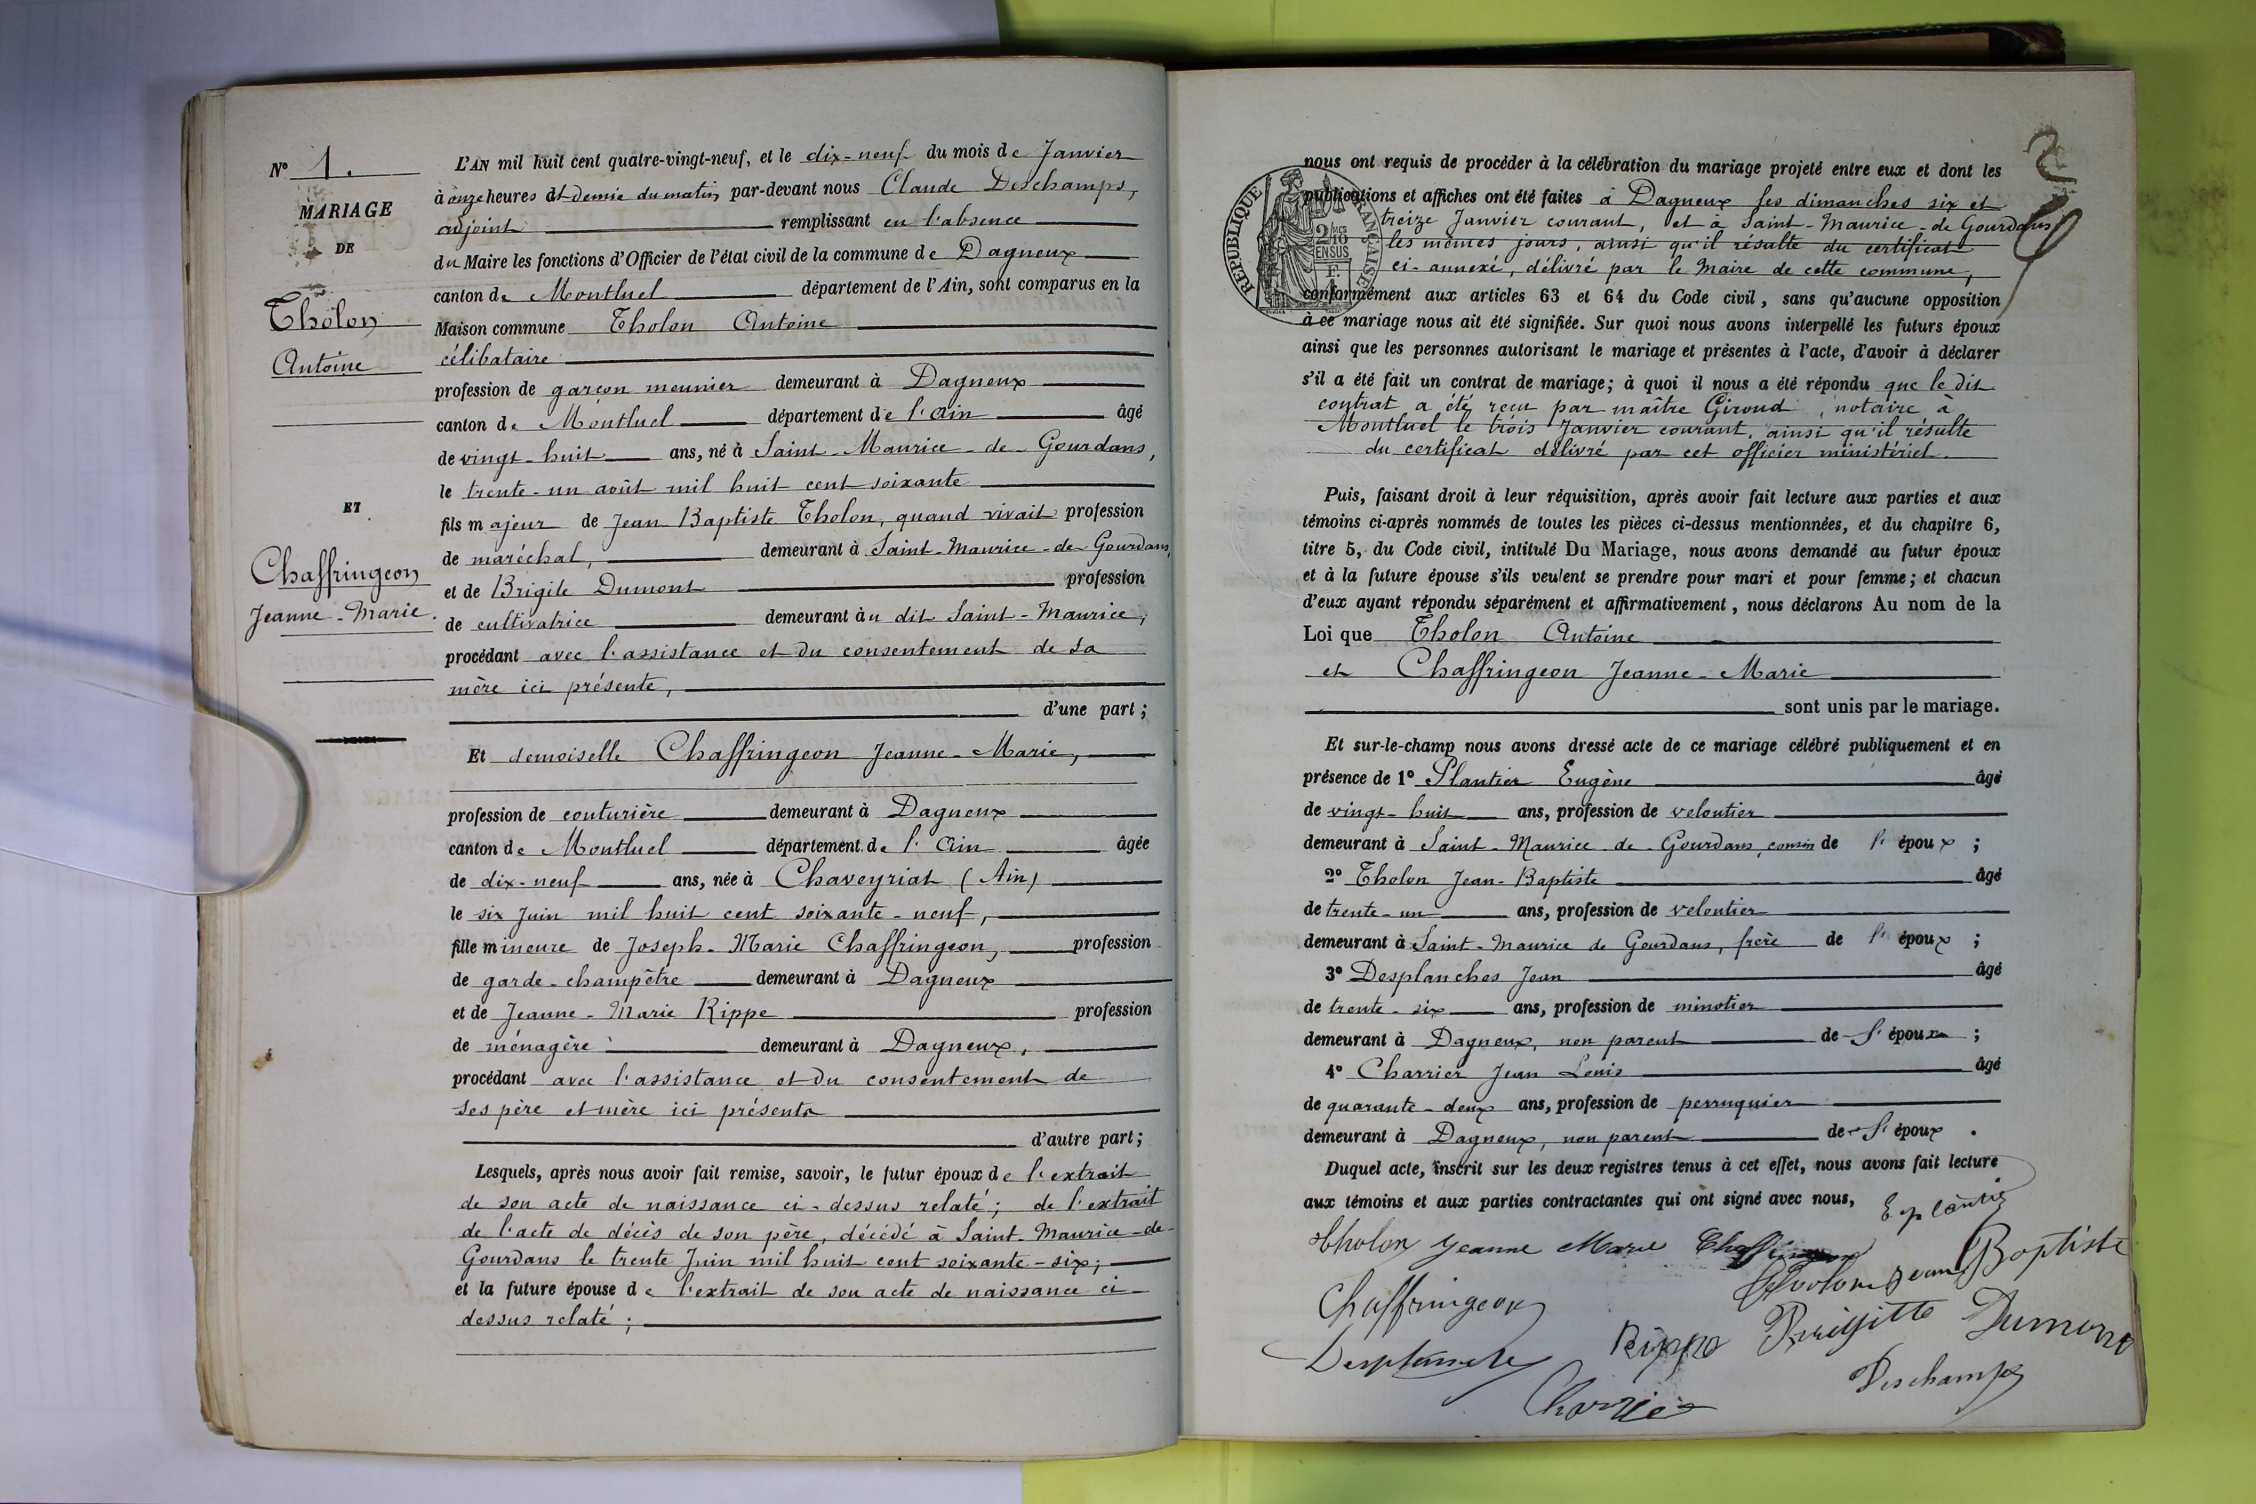 N° 1.
MARIAGE
DE
Tholon
Antoine
ET
Chaffringeon
Jeanne-Marie.
L'AN mil huit cent quatre-vingt-neuf, et le dix-neuf du mois de Janvier
à onze heures et demie du matin, par-devant nous Claude Deschamps,
adjoint remplissant en l'absence
du Maire les fonctions d'Officier de l'état civil de la commune de Dagneux
canton de Montluel département de l'Ain, sont comparus en la
Maison commune Tholon Antoine
célibataire
profession de garçon meunier demeurant à Dagneux
canton de Montluel département de l'Ain âgé
de vingt-huit ans, né à Saint-Maurice-de-Gourdans,
le trente-un août mil huit cent soixante
fils majeur de Jean Baptiste Tholon, quand vivait profession
de maréchal, demeurant à Saint-Maurice-de-Gourdans,
et de Brigite Dumont profession
de cultivatrice demeurant àu dit Saint-Maurice,
procédant avec l'assistance et du consentement de sa
mère ici présente,
d'une part;
Et demoiselle Chaffringeon Jeanne-Marie,
profession de couturière demeurant à Dagneux
canton de Montluel département de l'Ain âgée
de dix-neuf ans, née à Chaveyriat (Ain)
le six Juin mil huit cent soixante-neuf,
fille mineure de Joseph-Marie Chaffringeon, profession
de garde-champêtre demeurant à Dagneux
et de Jeanne-Marie Rippe profession
de ménagère demeurant à Dagneux,
procédant avec l'assistance et du consentement de
ses père et mère ici présents
d'autre part;
Lesquels, après nous avoir fait remise, savoir, le futur époux de l'extrait
de son acte de naissance ci-dessus relaté; de l'extrait
de l'acte de décès de son père, décédé à Saint-Maurice-de-
Gourdans le trente Juin mil huit cent soixante-six;
et la future épouse de l'extrait de son acte de naissance ci-
dessus relaté;
RÉPUBLIQUE FRANÇAISE
2/10
EN SUS
nous ont requis de procéder à la célébration du mariage projeté entre eux et dont les
publications et affiches ont été faites à Dagneux les dimanches six et
treize Janvier courant, et à Saint-Maurice-de-Gourdans
les mêmes jours, ainsi qu'il résulte du certificat
ci-annexé, délivré par le Maire de cette commune,
conformément aux articles 63 et 64 du Code civil, sans qu'aucune opposition
à ce mariage nous ait été signifiée. Sur quoi nous avons interpellé les futurs époux
ainsi que les personnes autorisant le mariage et présentes à l'acte, d'avoir à déclarer
s'il a été fait un contrat de mariage; à quoi il nous a été répondu que le dit
contrat a été reçu par maître Giroud, notaire à
Montluel le trois Janvier courant, ainsi qu'il résulte
du certificat délivré par cet officier ministériel.
Puis, faisant droit à leur réquisition, après avoir fait lecture aux parties et aux
témoins ci-après nommés de toutes les pièces ci-dessus mentionnées, et du chapitre 6,
titre 5, du Code civil, intitulé Du Mariage, nous avons demandé au futur époux
et à la future épouse s'ils veulent se prendre pour mari et pour femme; et chacun
d'eux ayant répondu séparément et affirmativement, nous déclarons Au nom de la
Loi que Tholon Antoine
et Chaffringeon Jeanne-Marie
sont unis par le mariage.
Et sur-le-champ nous avons dressé acte de ce mariage célébré publiquement et en
présence de 1° Plantier Eugène âgé
de vingt-huit ans, profession de veloutier
demeurant à Saint-Maurice-de-Gourdans, cousin de l'époux;
2° Tholon Jean-Baptiste âgé
de trente-un ans, profession de veloutier
demeurant à Saint-Maurice de Gourdans, frère de l'époux;
3° Desplanches Jean âgé
de trente-six ans, profession de minotier
demeurant à Dagneux, non parent de l'époux;
4° Charrier Jean Louis âgé
de quarante-deux ans, profession de perruquier
demeurant à Dagneux, non parent de l'époux.
Duquel acte, inscrit sur les deux registres tenus à cet effet, nous avons fait lecture
aux témoins et aux parties contractantes qui ont signé avec nous,
E plantier
Tholon Jeanne Marie Chaffringeon
Tholon Jean Baptiste
Chaffringeon
Rippe Brigitte Dumont
Desplanche
Deschamps
Charrier